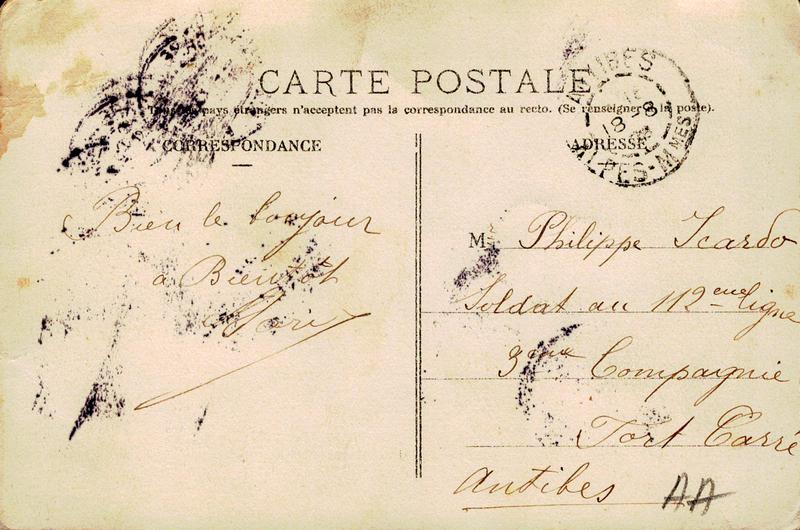 CARTE POSTALE
pays étrangers n'acceptent pas la correspondance au recto. (Se renseigner à la poste).
CORRESPONDANCE
ADRESSE
ANTIBES
18-8
ALPES-MMES
Bien le bonjour
à Bientôt
M Philippe Icardo
Soldat au 112eme Ligne
3eme Compagnie
Fort Carré
Antibes
AA